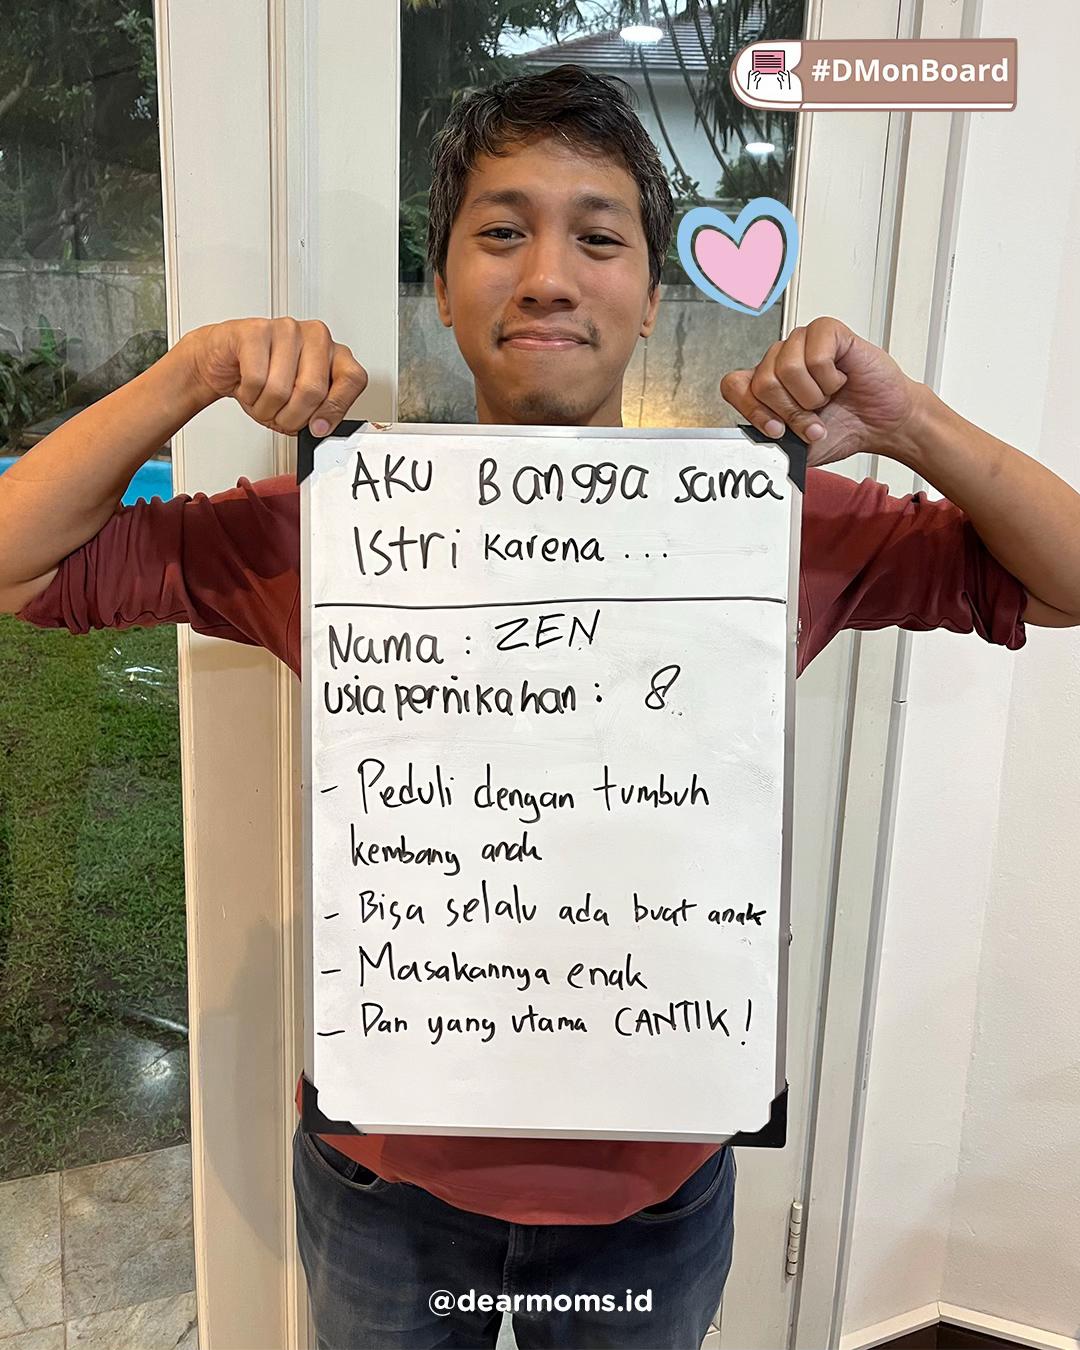 #DMonBoard
AKU Bangga sama
Istri karena ...
Nama : ZEN
Usia pernikahan : 8
- Peduli dengan tumbuh
kembang anak
- Bisa selalu ada buat anak
- Masakannya enak
- Dan yang utama CANTIK !
@dearmoms.id